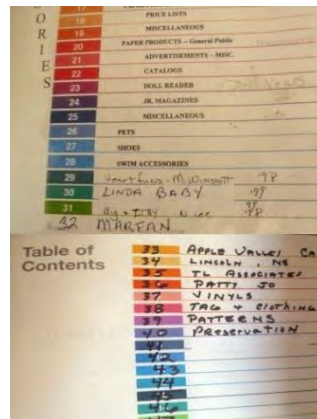 ORIES
17
18 PRICE LISTS
19 MISCELLANEOUS
20 PAPER PRODUCTS -- General Public
21 ADVERTISEMENTS - MISC.
22 CATALOGS
23 DOLL READER
24 JR. MAGAZINES
25 MISCELLANEOUS
26 PETS
27 SHOES
28 SWIM ACCESSORIES
29 Heartfund - M. Winsott '98
30 LINDA BABY '98
31 '98
32 MARFAN
Table of Contents
33 APPLE VALLEY CA
34 LINCOLN, NE
35 TL ASSOCIATES
36 PATTY JO
37 VINYLS
38 TAG & CLOTHING
39 PATTERNS
40 PRESERVATION
41
42
43
44
45
46